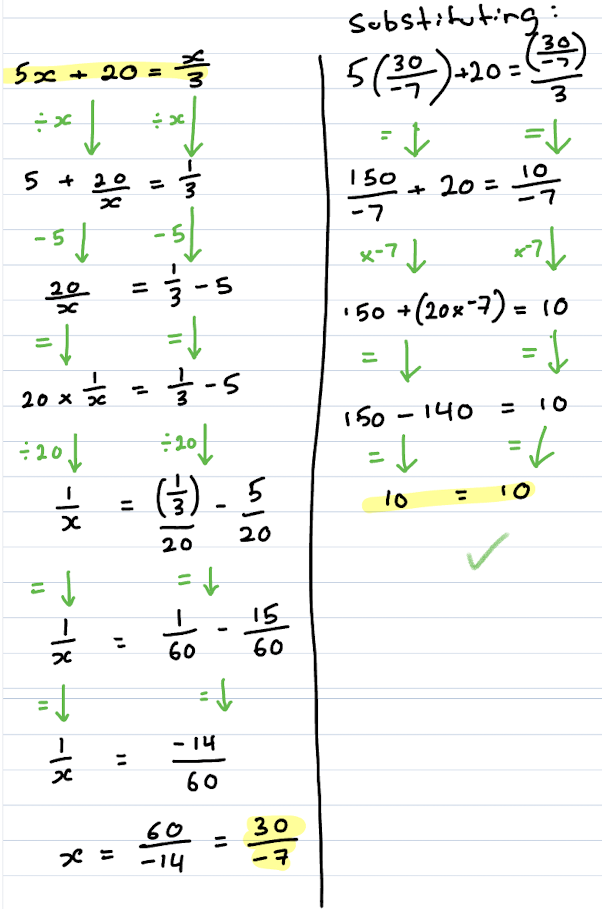 5x + 20 = x/3
÷x ÷x
5 + 20/x = 1/3
-5 -5
20/x = 1/3 - 5
= =
20 × 1/x = 1/3 - 5
÷20 ÷20
1/x = (1/3)/20 - 5/20
= =
1/x = 1/60 - 15/60
= =
1/x = -14/60
x = 60/-14 = 30/-7
Substituting:
5(30/-7) + 20 = (30/-7)/3
= =
150/-7 + 20 = 10/-7
×-7 ×-7
150 + (20×-7) = 10
= =
150 - 140 = 10
= =
10 = 10
✓